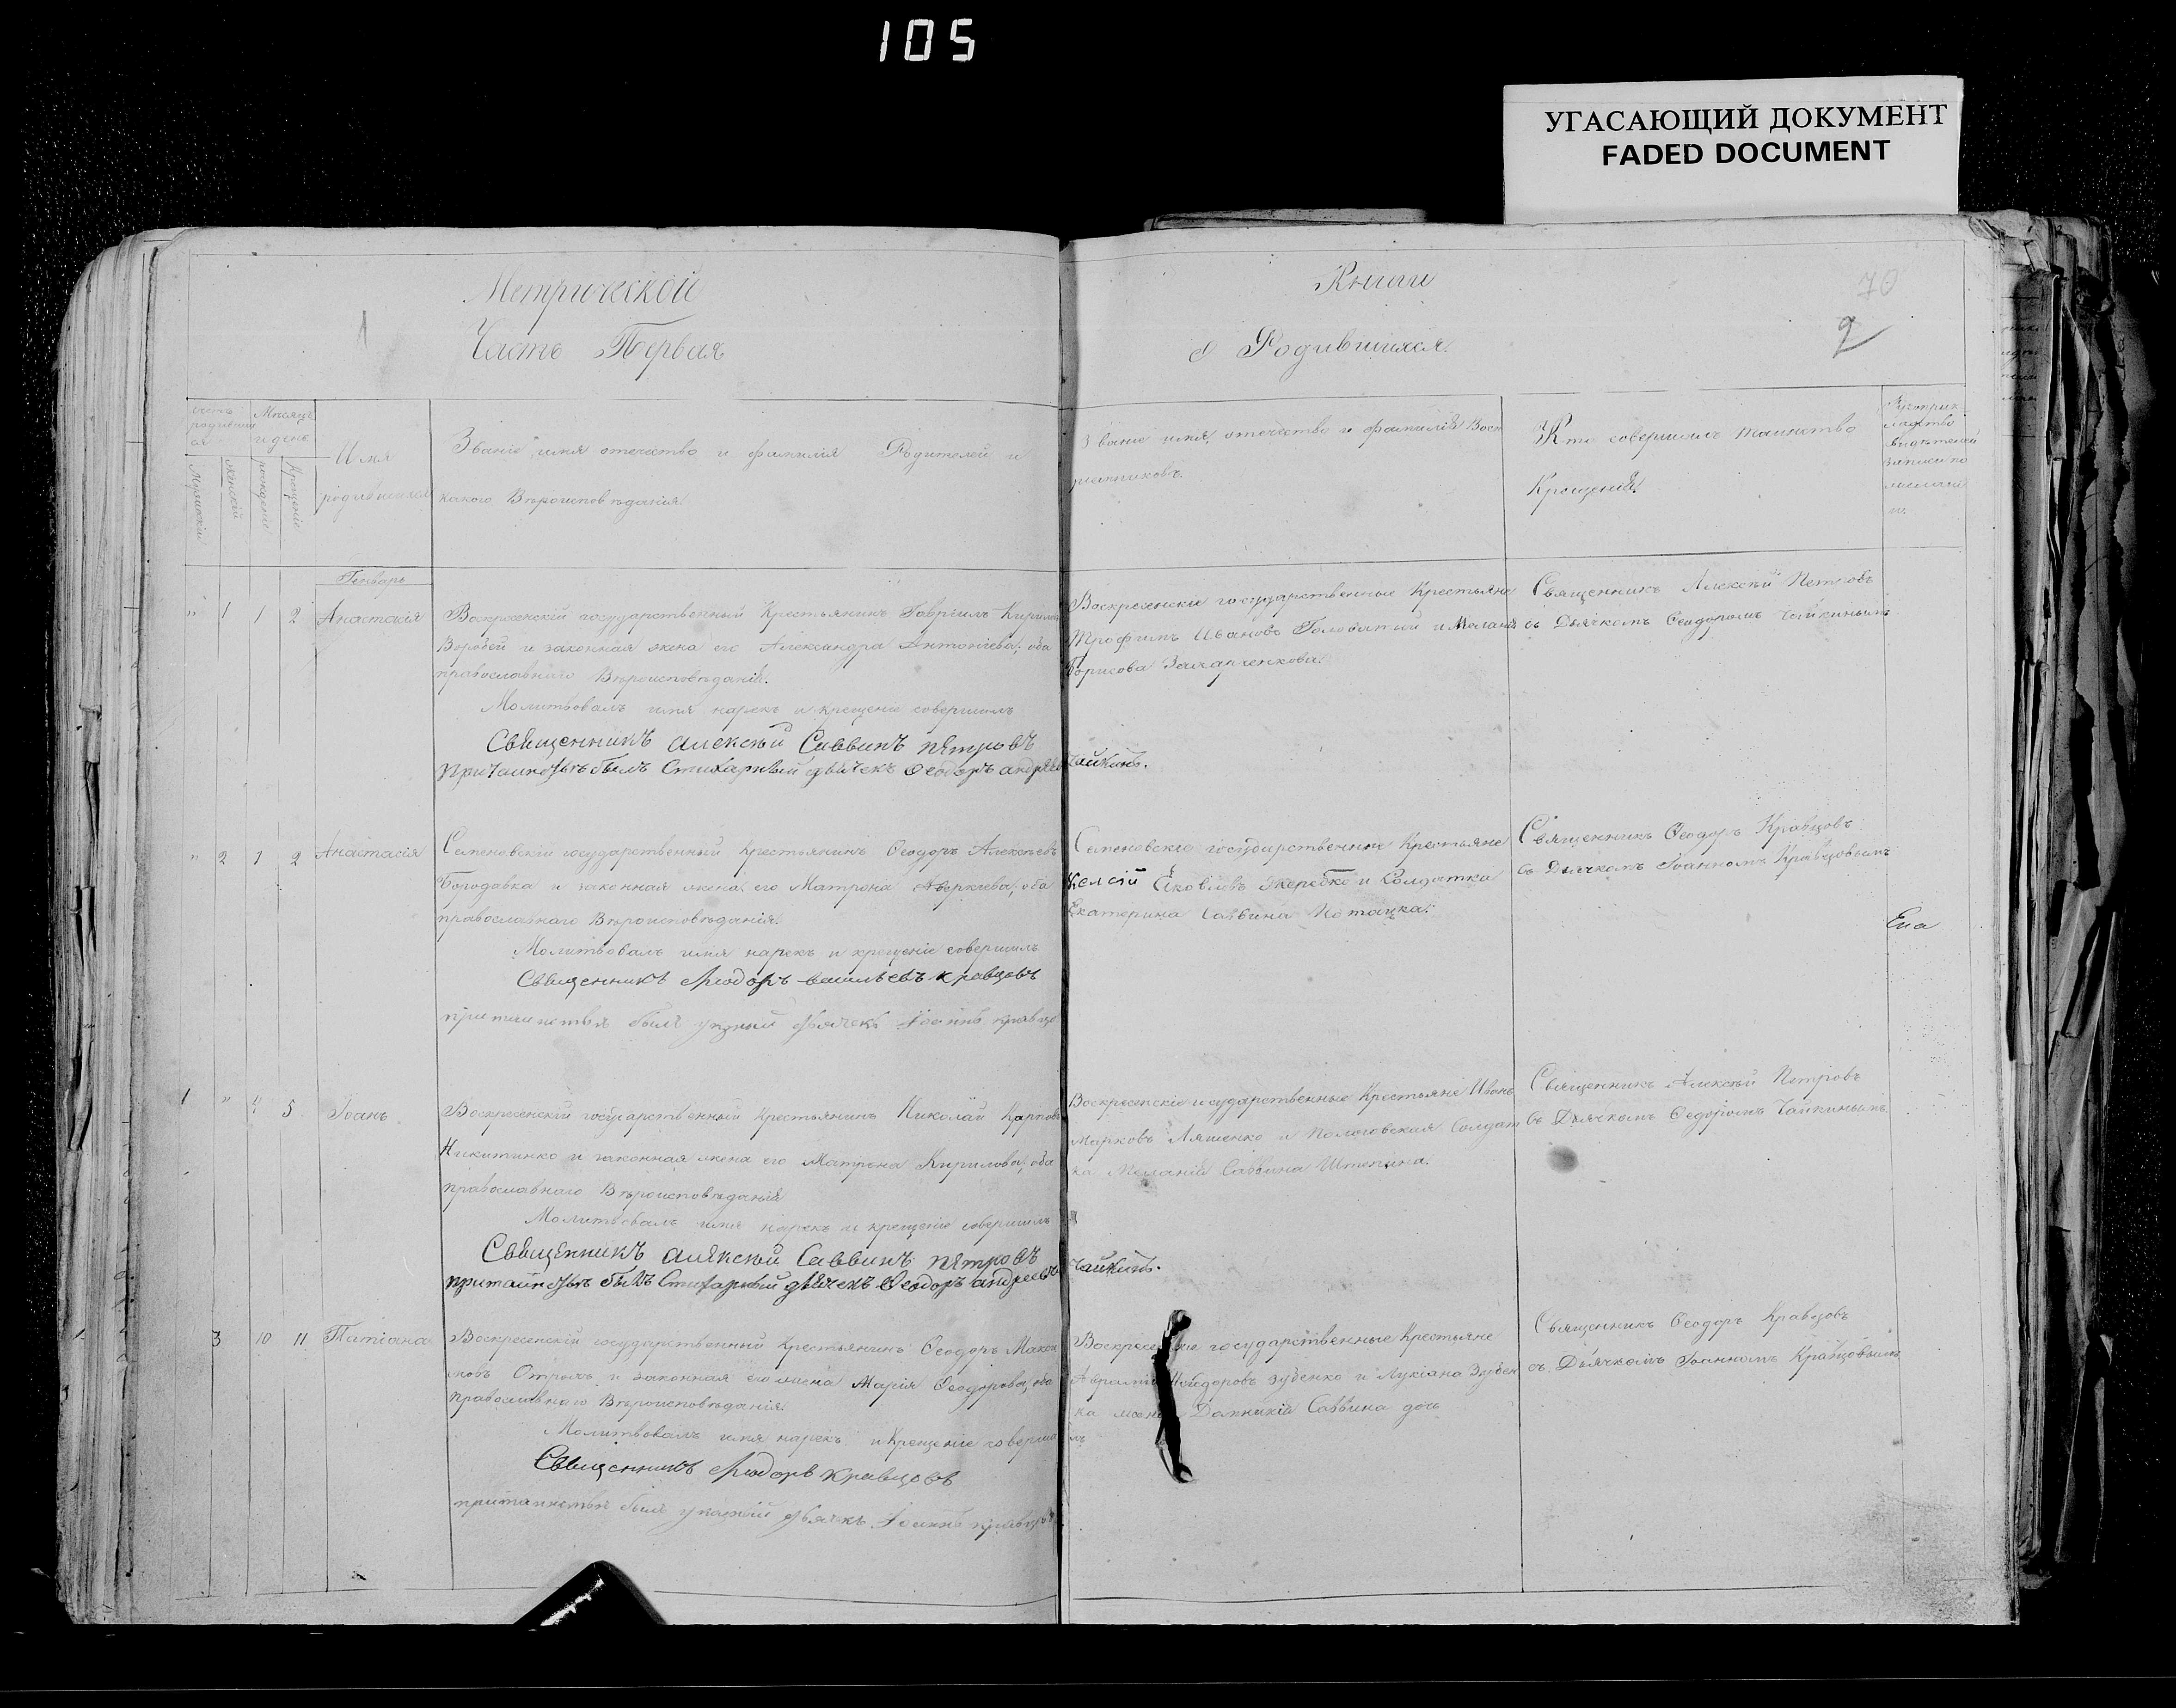 105
УГАСАЮЩИЙ ДОКУМЕНТ
FADED DOCUMENT
Метрической
Книги
70
1
2
Часть Первая
о Родившихся.
Мѣсяцъ
и день
Имя
родившихся
Званіе, имя отечество и фамилія Родителей и
какого Вѣроисповѣданія.
Званіе имя, отечество и фамилія Восп
ріемниковъ.
Кто совершалъ таинство
Крещенія.
Женскій
рожденіе
Крещеніе
Генварь
" 1 1 2 Анастасія
Воскресенскій государственный Крестьянинъ Гавріилъ Кирилов
Воробей и законная жена его Александра Антоніева; оба
православнаго Вѣроисповѣданія.
Молитвовалъ имя нарекъ и крещеніе совершилъ
Священникъ Алексѣй Саввинъ Петровъ
При таинствѣ былъ Стихарный дьячекъ Ѳеодоръ Андреевъ
Чайкинъ.
Воскресенскіе государственные Крестьяне
Трофимъ Ивановъ Голобатый и Меланія
Борисова
Священникъ Алексѣй Петровъ
съ Дьячкомъ Ѳеодоромъ Чайкинымъ
" 2 1 2 Анастасія
Семеновскій государственный Крестьянинъ Ѳеодоръ Алексѣевъ
Бородавка и законная жена его Матрона Аверкиева; оба
православнаго Вѣроисповѣданія.
Молитвовалъ имя нарекъ и крещеніе совершилъ
Священникъ Ѳеодоръ Васильевъ Кравцовъ
при таинствѣ былъ дьячекъ Іоаннъ Кравцо
Семеновскіе государственные Крестьяне
Яковлевъ Жеребко и Солдатка
Екатерина Саввина
Священникъ Ѳеодоръ Кравцовъ
съ Дьячкомъ Іоанномъ Кравцовымъ
1 " 4 5 Іоанъ
Воскресенскій государственный Крестьянинъ Николай Карповъ
Никитинко и законная жена его Матрона Кирилова; оба
православнаго Вѣроисповѣданія
Молитвовалъ имя нарекъ и крещеніе совершилъ
Священникъ Алексѣй Саввинъ Петровъ
при таинствѣ былъ Стихарный дьячекъ Ѳеодоръ Андреевъ
Чайкинъ.
Воскресенскіе государственные Крестьяне Иванъ
Марковъ Ляшенко и Пологовская Солдат
ка Меланія Саввина Штепина.
Священникъ Алексѣй Петровъ
съ Дьячкомъ Ѳеодоромъ Чайкинымъ
3 10 11 Татіана
Воскресенскій государственный Крестьянинъ Ѳеодоръ
и законная его жена Марія Ѳеодорова; оба
Православнаго Вѣроисповѣданія.
Молитвовалъ имя нарекъ и Крещеніе соверши
лъ
Священникъ Ѳеодоръ Кравцовъ
при таинствѣ былъ дьячекъ Іоаннъ Кравцовъ
государственные Крестьяне
Зубенко и Лукіана Зубен
ка жена Домникія Саввина дочь
Священникъ Ѳеодоръ Кравцовъ
съ Дьячкомъ Іоанномъ Кравцовымъ